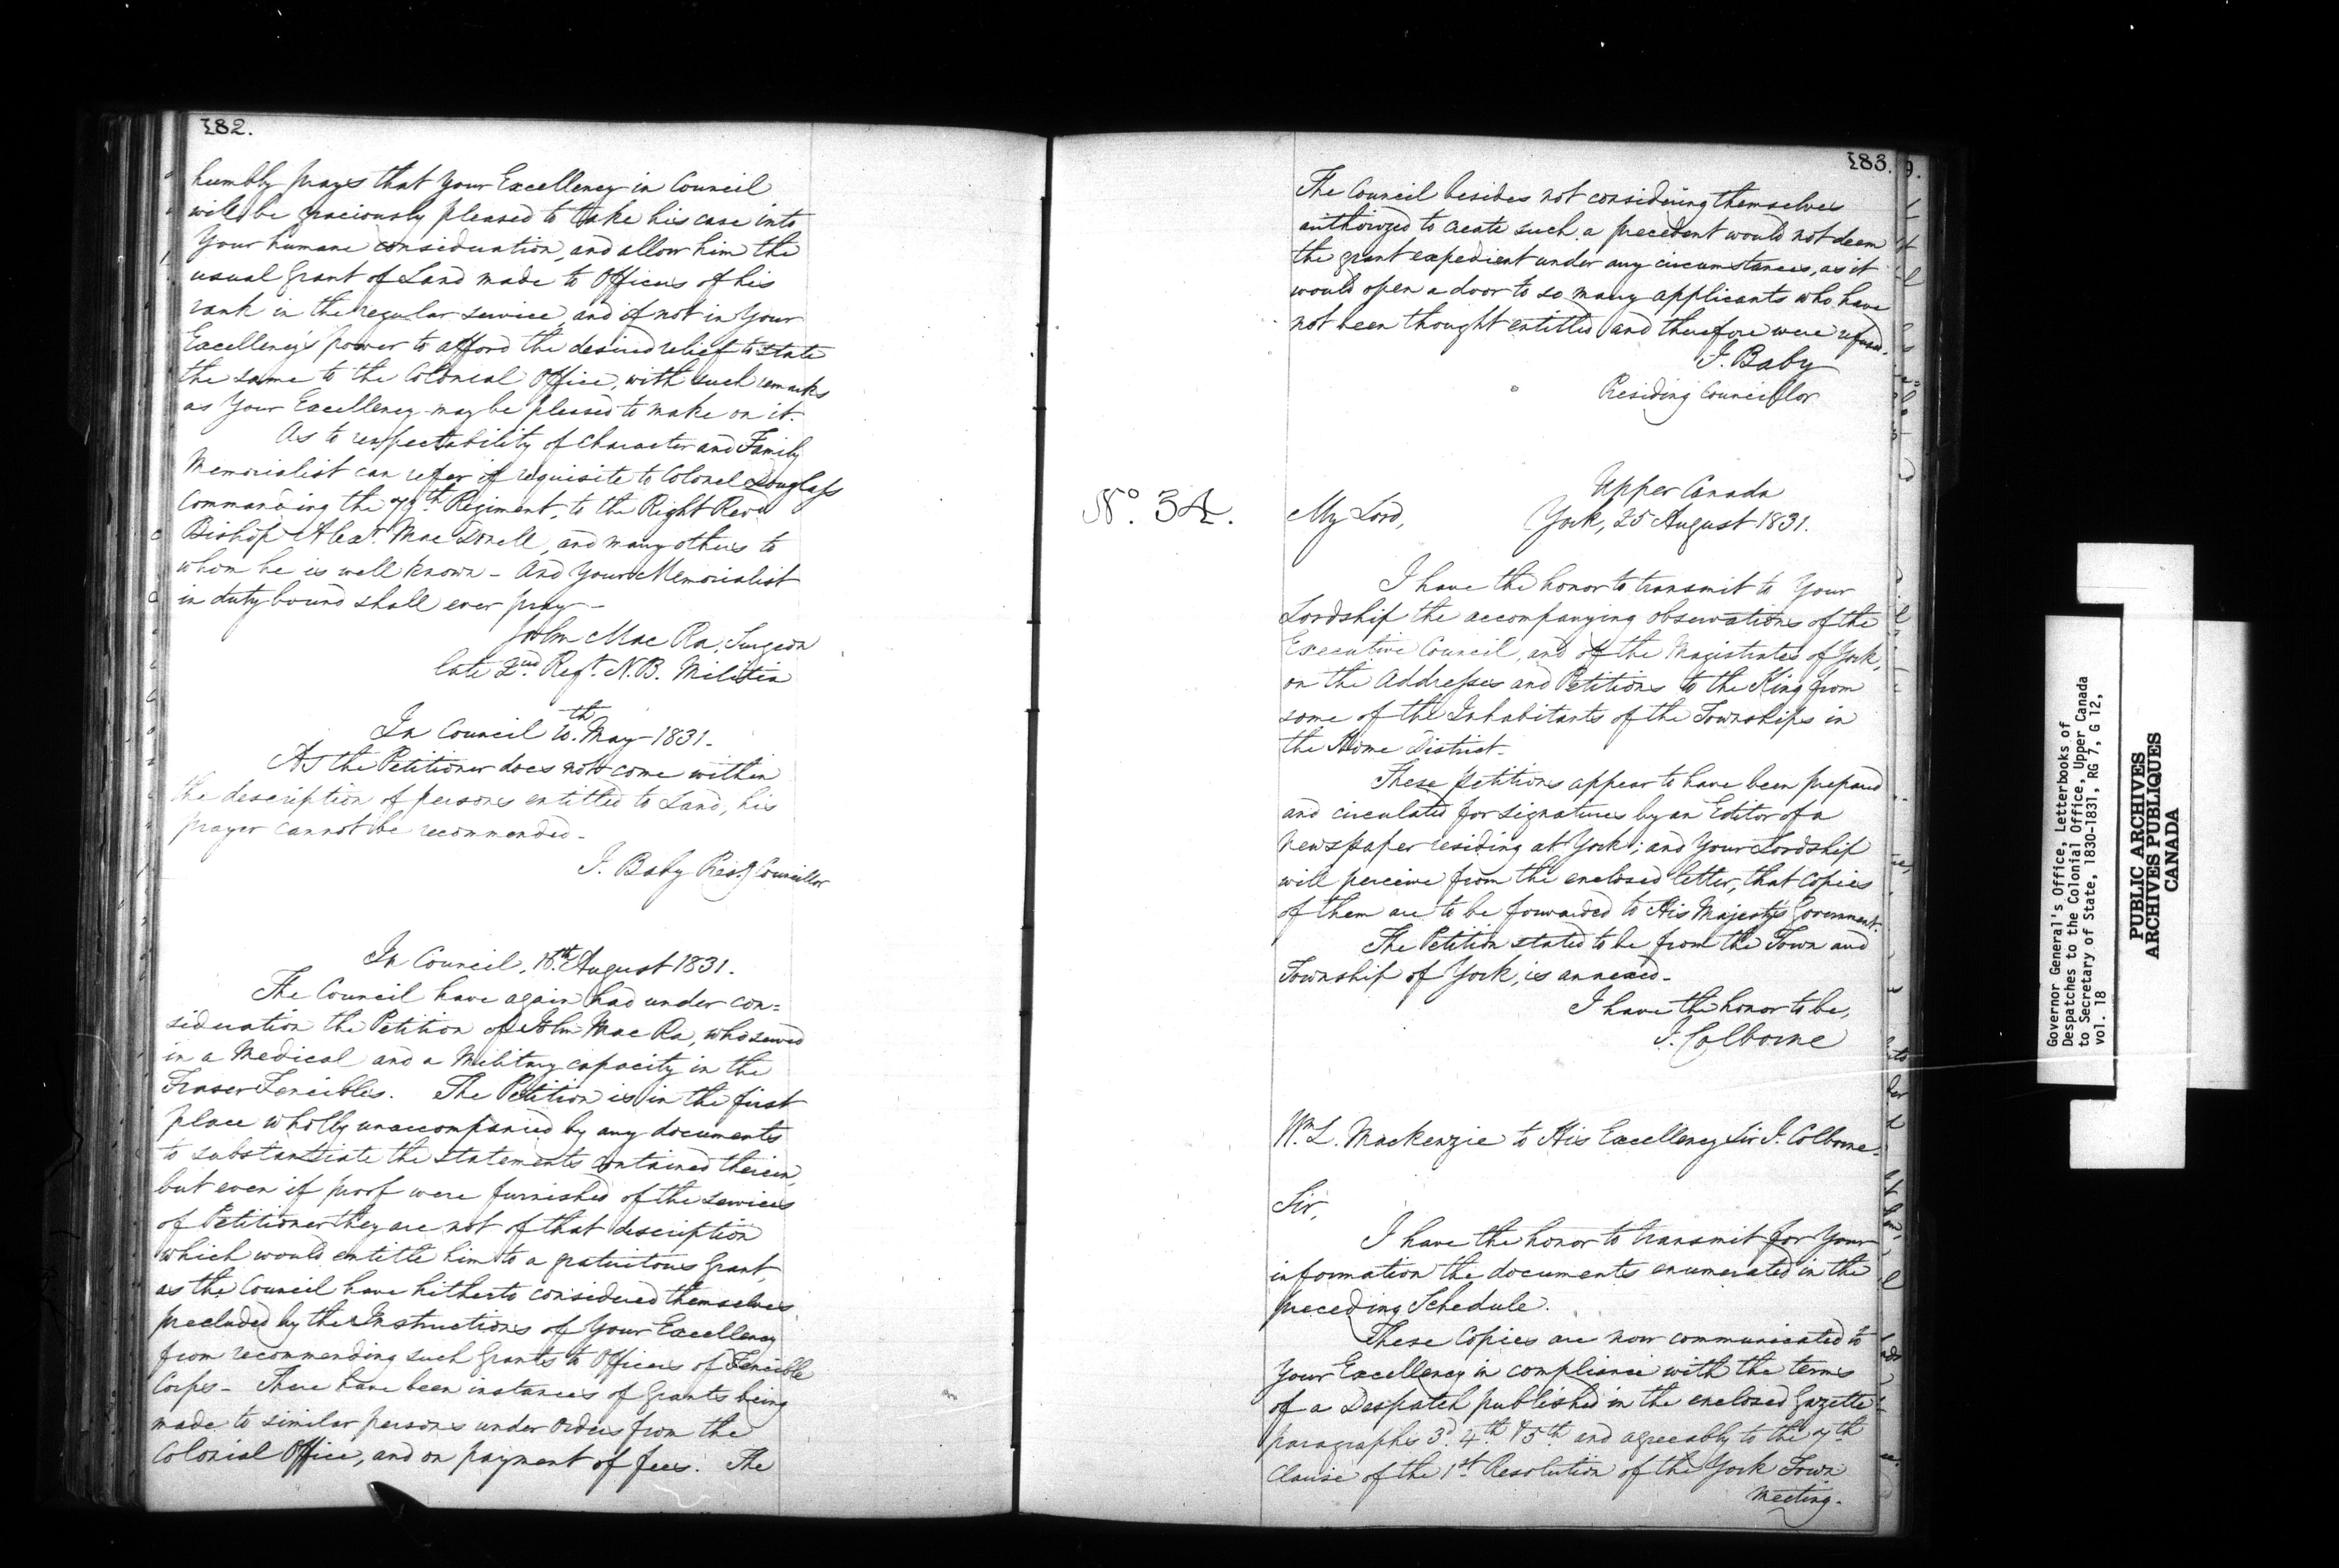 182.
humbly prays that Your Excellency in Council
will be graciously pleased to take his case into
Your humane consideration, and allow him the
usual Grant of Land made to Officers of his
rank in the regular service, and if not in Your
Excellency's power to afford the desired relief to state
the same to the Colonial Office, with such remarks
as Your Excellency may be pleased to make on it.
As to respectability of Character and Family
Memorialist can refer if requisite to Colonel Douglass
Commanding the 79th Regiment, to the Right Revd
Bishop Alexr. Mac Donell, and many others to
whom he is well known - And Your Memorialist
in duty bound shall ever pray -
John Mac Ra, Surgeon
late 2nd Regt. N.B. Militia
In Council 10th. May 1831.
As the Petitioner does not come within
the description of persons entitled to Land, his
prayer cannot be recommended -
J. Baby Presg Councillor
In Council, 18th. August 1831.
The Council have again had under con=
sideration the Petition of John Mac Ra, who served
in a Medical and a Military capacity in the
Fraser Fencibles. The Petition is in the first
place wholly unaccompanied by any documents
to substantiate the statements contained therein,
but even if proof were furnished of the services
of Petitioner they are not of that description
which would entitle him to a gratuitous Grant,
as the Council have hitherto considered themselves
precluded by the Instructions of Your Excellency
from recommending such Grants to Officers of Fencible
Corps - There have been instances of Grants being
made to similar persons under Orders from the
Colonial Office, and on payment of fees. The
183.
The Council besides not considering themselves
authorized to create such a precedent would not deem
the grant expedient under any circumstances, as it
would open a door to so many applicants who have
not been thought entitled and therefore were refused.
J. Baby
Presiding Councillor
No. 34.
Upper Canada
My Lord, York, 25 August 1831.
I have the honor to transmit to Your
Lordship the accompanying observations of the
Executive Council, and of the Magistrates of York,
on the Addresses and Petitions to the King from
some of the Inhabitants of the Townships in
the Home District -
These petitions appear to have been prepared
and circulated for signatures by an Editor of a
Newspaper residing at York; and Your Lordship
will perceive from the enclosed letter, that Copies
of them are to be forwarded to His Majesty's Government.
The Petition stated to be from the Town and
Township of York, is annexed -
I have the honor to be,
J. Colborne
Wm. L. Mackenzie to His Excellency Sir J. Colborne.
Sir,
I have the honor to transmit for Your
information the documents enumerated in the
preceding Schedule.
These Copies are now communicated to
Your Excellency in compliance with the terms
of a Despatch published in the enclosed Gazette
paragraphs 3d. 4th. & 5th and agreeably to the 7th
Clause of the 1st. Resolution of the York Town
Meeting.
Governor General's Office, Letterbooks of
Despatches to the Colonial Office, Upper Canada
to Secretary of State, 1830-1831, RG 7, G 12,
vol. 18
PUBLIC ARCHIVES
ARCHIVES PUBLIQUES
CANADA